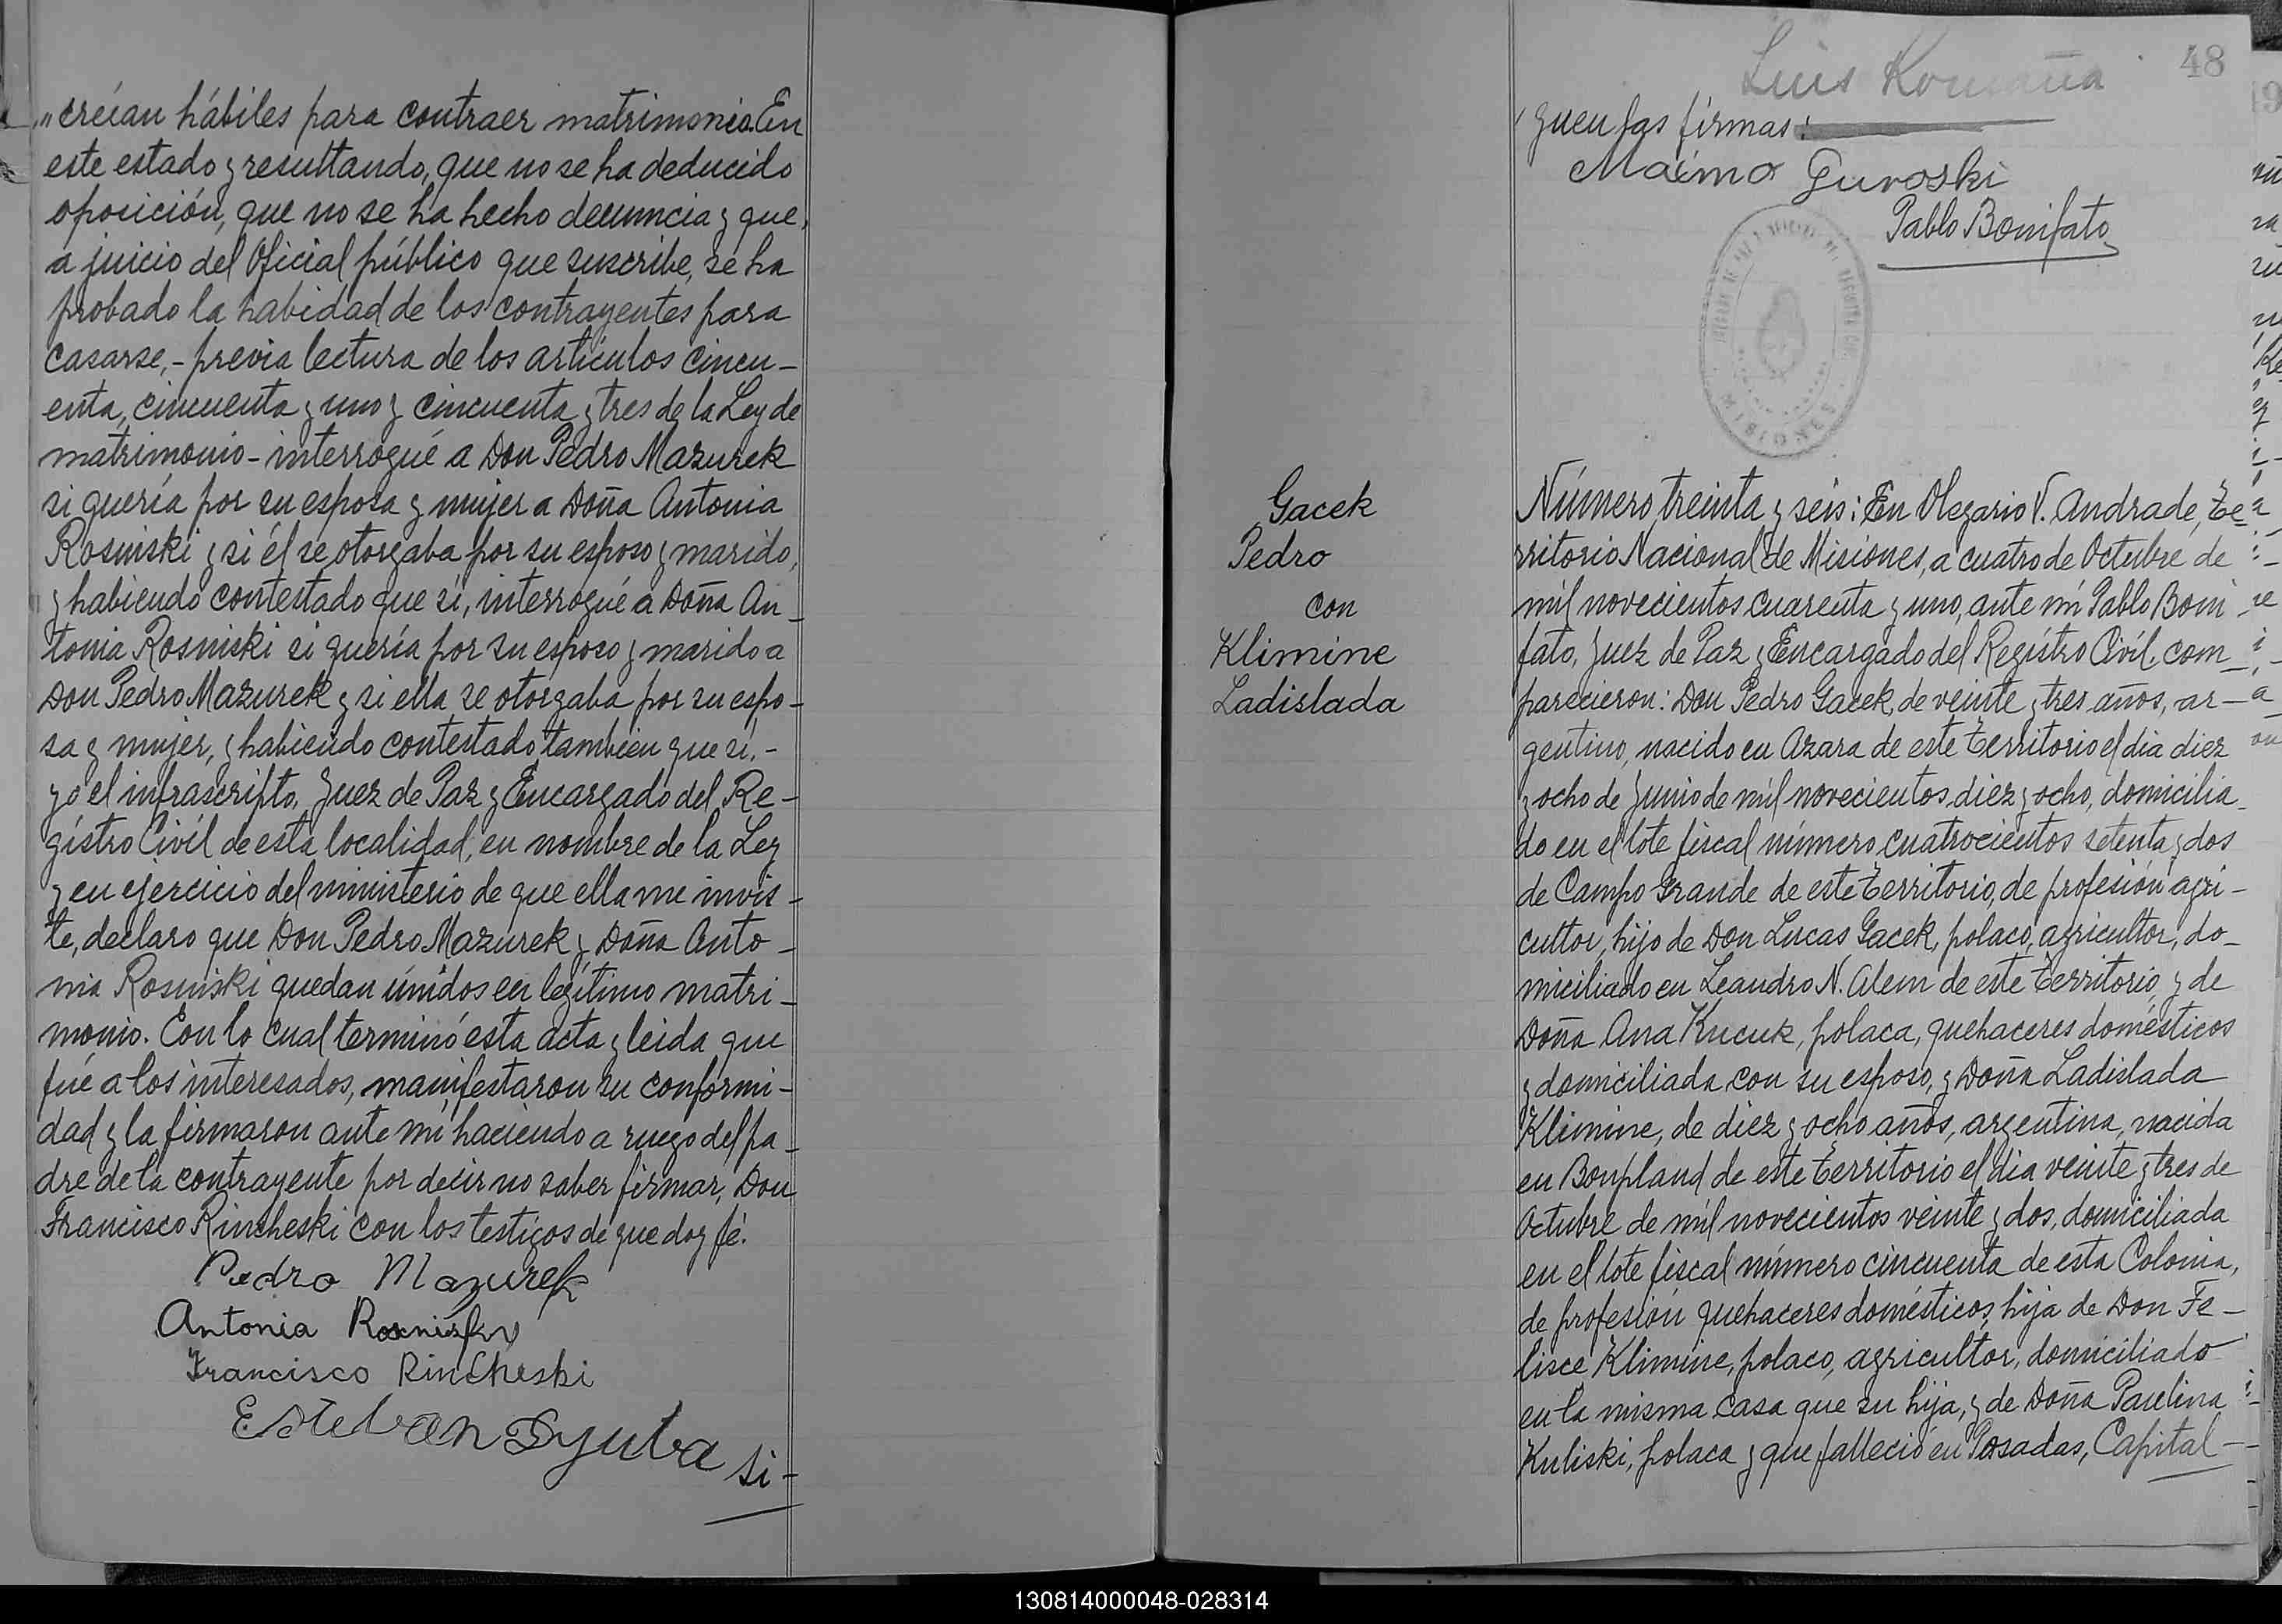 "creían hábiles para contraer matrimonio. En
este estado y resultando, que no se ha deducido
oposición, que no se ha hecho denuncia y que,
a juicio del Oficial público que suscribe, se ha
probado la habidad de los contrayentes para
casarse,- previa lectura de los artículos cincu-
enta, cincuenta y uno y cincuenta y tres de la Ley de
matrimonio- interrogué a Don Pedro Mazurek
si quería por su esposa y mujer a Doña Antonia
Rosniski y si él se otorgaba por su esposo y marido,
y habiendo contestado que sí, interrogué a Doña An-
tonia Rosniski si quería por su esposo y marido a
Don Pedro Mazurek y si ella se otorgaba por su espo-
sa y mujer, y habiendo contestado también que sí,-
yo el infrascripto, Juez de Paz y Encargado del Re-
gistro Civíl de esta localidad, en nombre de la Ley
y en ejercicio del ministerio de que ella me invis-
te, declaro que Don Pedro Mazurek y Doña Anto-
nia Rosniski quedan únidos en legítimo matri-
monio. Con lo cual terminó esta acta y leida que
fué a los interesados, manifestaron su conformi-
dad y la firmaron ante mí haciendo a ruego del pa-
dre de la contrayente por decir no saber firmar, Don
Francisco Rincheski con los testigos de que doy fé.
Pedro Mazurek
Antonia Rosnisky
Francisco Rincheski
Esteban
si-
48
Luis
guen las firmas:
Maximo Guroski
Pablo Bonifato
MISIONES
Gacek
Pedro
con
Klimine
Ladislada
Número treinta y seis: En Olegario V. Andrade, Te-
rritorio Nacional de Misiones, a cuatro de Octubre de
mil novecientos cuarenta y uno, ante mí Pablo Boni
fato, Juez de Paz y Encargado del Registro Civíl, com-
parecieron: Don Pedro Gacek, de veinte y tres años, ar-
gentino, nacido en Azara de este territorio el día diez
y ocho de Junio de mil novecientos diez y ocho, domicilia-
do en el lote fiscal número cuatrocientos setenta y dos
de Campo Grande de este territorio, de profesión agri-
cultor, hijo de Don Lucas Gacek, polaco, agricultor, do-
miciliado en Leandro N. Alem de este territorio, y de
Doña Ana Kucuk, polaca, quehaceres domésticos
y domiciliada con su esposo, y Doña Ladislada
Klimine, de diez y ocho años, argentina, nacida
en Bonpland de este territorio el día veinte y tres de
Octubre de mil novecientos veinte y dos, domiciliada
en el lote fiscal número cincuenta de esta Colonia,
de profesión quehaceres domésticos, hija de Don Fe-
lisce Klimine, polaco, agricultor, domiciliado
en la misma casa que su hija, y de Doña Paulina
Kuliski, polaca y que falleció en Posadas, Capital-
130814000048-028314